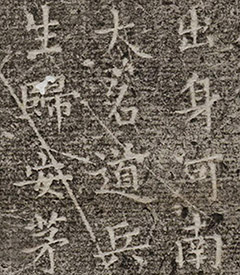 出身河南
太君道兵
生歸安茅